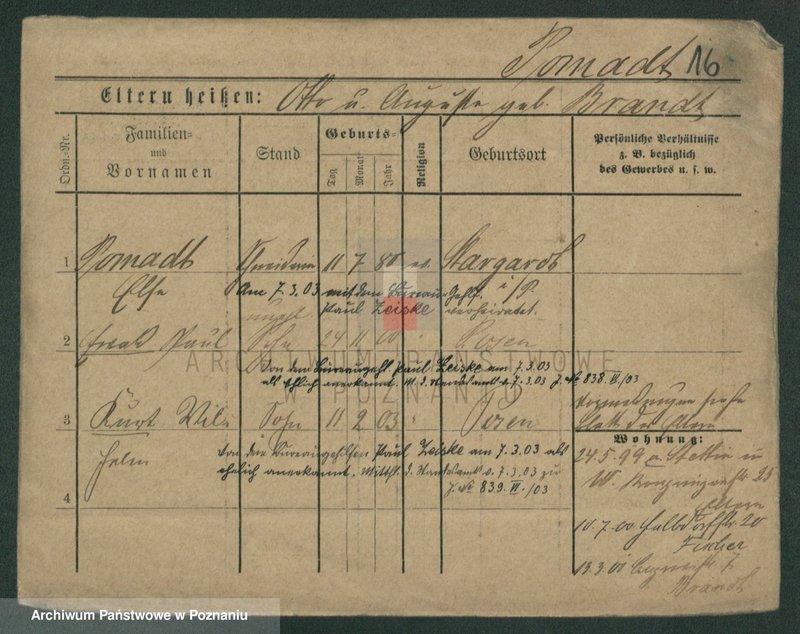 Pomadt 16
Eltern heißen: Otto u. Auguste geb. Brandt
Ordn.-Nr.
Familien-
und
Vornamen
Stand
Geburts-
Tag
Monat
Jahr
Religion
Geburtsort
Persönliche Verhältnisse
z. B. bezüglich
des Gewerbes u. s. w.
1 Pomadt 11 7 80 ev. Stargardt
Else i/P.
Am 7.3.03 mit dem Bureau-Gehlf.
Paul Zeiske verheiratet.
2 Paul Sohn 24 11 00 Posen
Von dem Bureaugehlf. Paul Zeiske am 7.3.03
als ehlich anerkannt. M. d. Standesamts v. 7.3.03 J. № 838 VI/03
3 Kurt Wil- Sohn 11 2 03 Posen
helm
Von dem Bureaugehilfen Paul Zeiske am 7.3.03 als
ehelich anerkannt. Mitth. d. Standesamts v. 7.3.03 zu
J. № 839. VI./03
4
Wohnung:
24.5.99 a Stettin
Eltern
10.7.00 20
Fischer
13.3.01
Brandt
ARCHIWUM PAŃSTWOWE
W POZNANIU
Archiwum Państwowe w Poznaniu